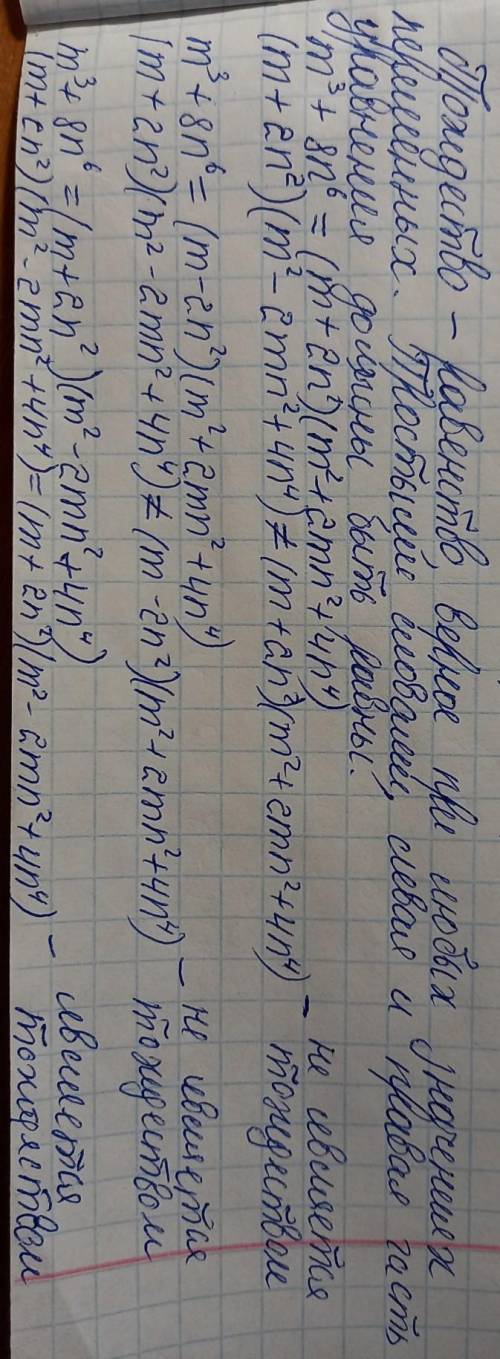 Тождество – равенство, верное при любых значениях
переменных. Простыми словами, левая и правая часть
уравнения должны быть равны.
m³ + 8n⁶ = (m + 2n²)(m² + 2mn² + 4n⁴)
(m + 2n²)(m² - 2mn² + 4n⁴) ≠ (m + 2n²)(m² + 2mn² + 4n⁴) – не является
тождеством
m³ + 8n⁶ = (m - 2n²)(m² + 2mn² + 4n⁴)
(m + 2n²)(m² - 2mn² + 4n⁴) ≠ (m - 2n²)(m² + 2mn² + 4n⁴) – не является
тождеством
m³ + 8n⁶ = (m + 2n²)(m² - 2mn² + 4n⁴)
(m + 2n²)(m² - 2mn² + 4n⁴) = (m + 2n²)(m² - 2mn² + 4n⁴) – является
тождеством